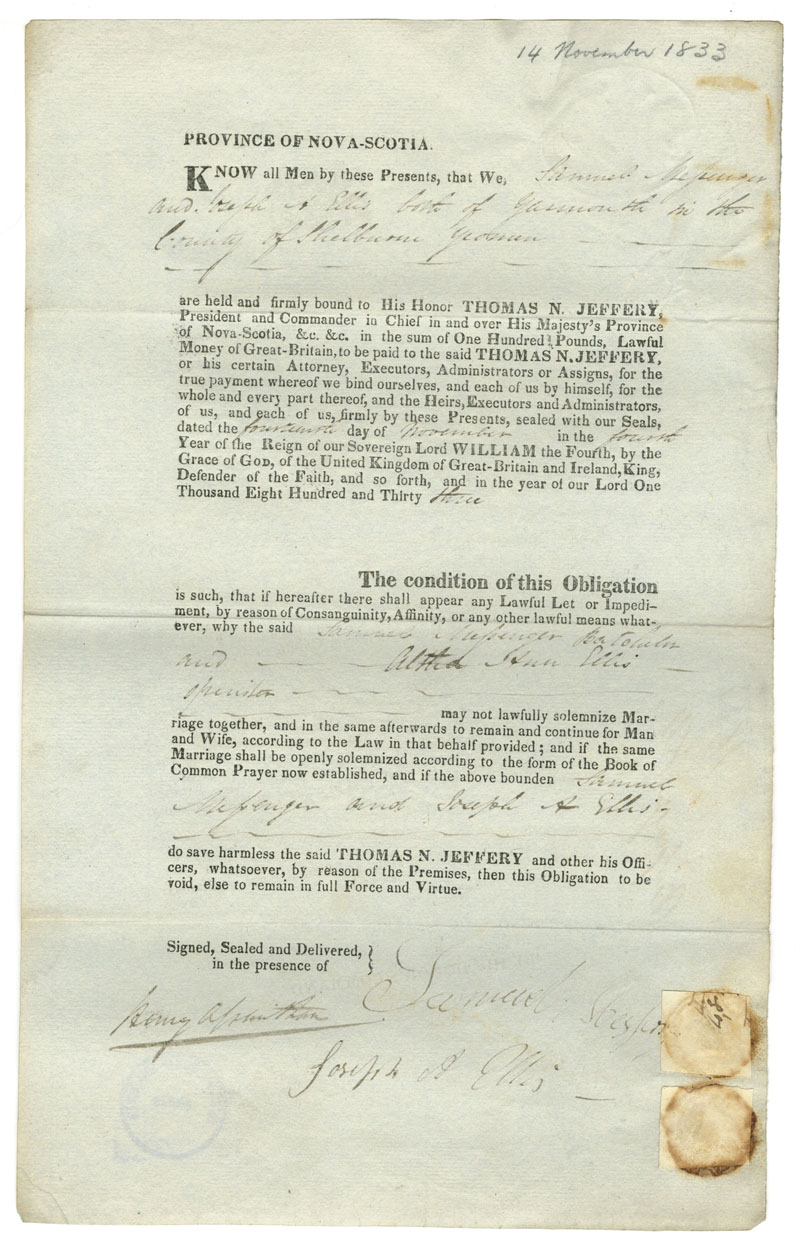 14 November 1833
PROVINCE OF NOVA-SCOTIA.
KNOW all Men by these Presents, that We, Samuel Messenger
and Joseph A Ellis both of Yarmouth in the
County of Shelburne Yeomen
are held and firmly bound to His Honor THOMAS N. JEFFERY,
President and Commander in Chief in and over His Majesty's Province
of Nova-Scotia, &c. &c. in the sum of One Hundred Pounds, Lawful
Money of Great-Britain, to be paid to the said THOMAS N. JEFFERY,
or his certain Attorney, Executors, Administrators or Assigns, for the
true payment whereof we bind ourselves, and each of us by himself, for the
whole and every part thereof, and the Heirs, Executors and Administrators,
of us, and each of us, firmly by these Presents, sealed with our Seals,
dated the fourteenth day of November in the fourth
Year of the Reign of our Sovereign Lord WILLIAM the Fourth, by the
Grace of GOD, of the United Kingdom of Great-Britain and Ireland, King,
Defender of the Faith, and so forth, and in the year of our Lord One
Thousand Eight Hundred and Thirty three
The condition of this Obligation
is such, that if hereafter there shall appear any Lawful Let or Impedi-
ment, by reason of Consanguinity, Affinity, or any other lawful means what-
ever, why the said Samuel Messenger
and Ann Ellis
spinster
may not lawfully solemnize Mar-
riage together, and in the same afterwards to remain and continue for Man
and Wife, according to the Law in that behalf provided; and if the same
Marriage shall be openly solemnized according to the form of the Book of
Common Prayer now established, and if the above bounden Samuel
Messenger and Joseph A Ellis
do save harmless the said THOMAS N. JEFFERY and other his Offi-
cers, whatsoever, by reason of the Premises, then this Obligation to be
void, else to remain in full Force and Virtue.
Signed, Sealed and Delivered,
in the presence of
Samuel
Henry
Joseph A Ellis